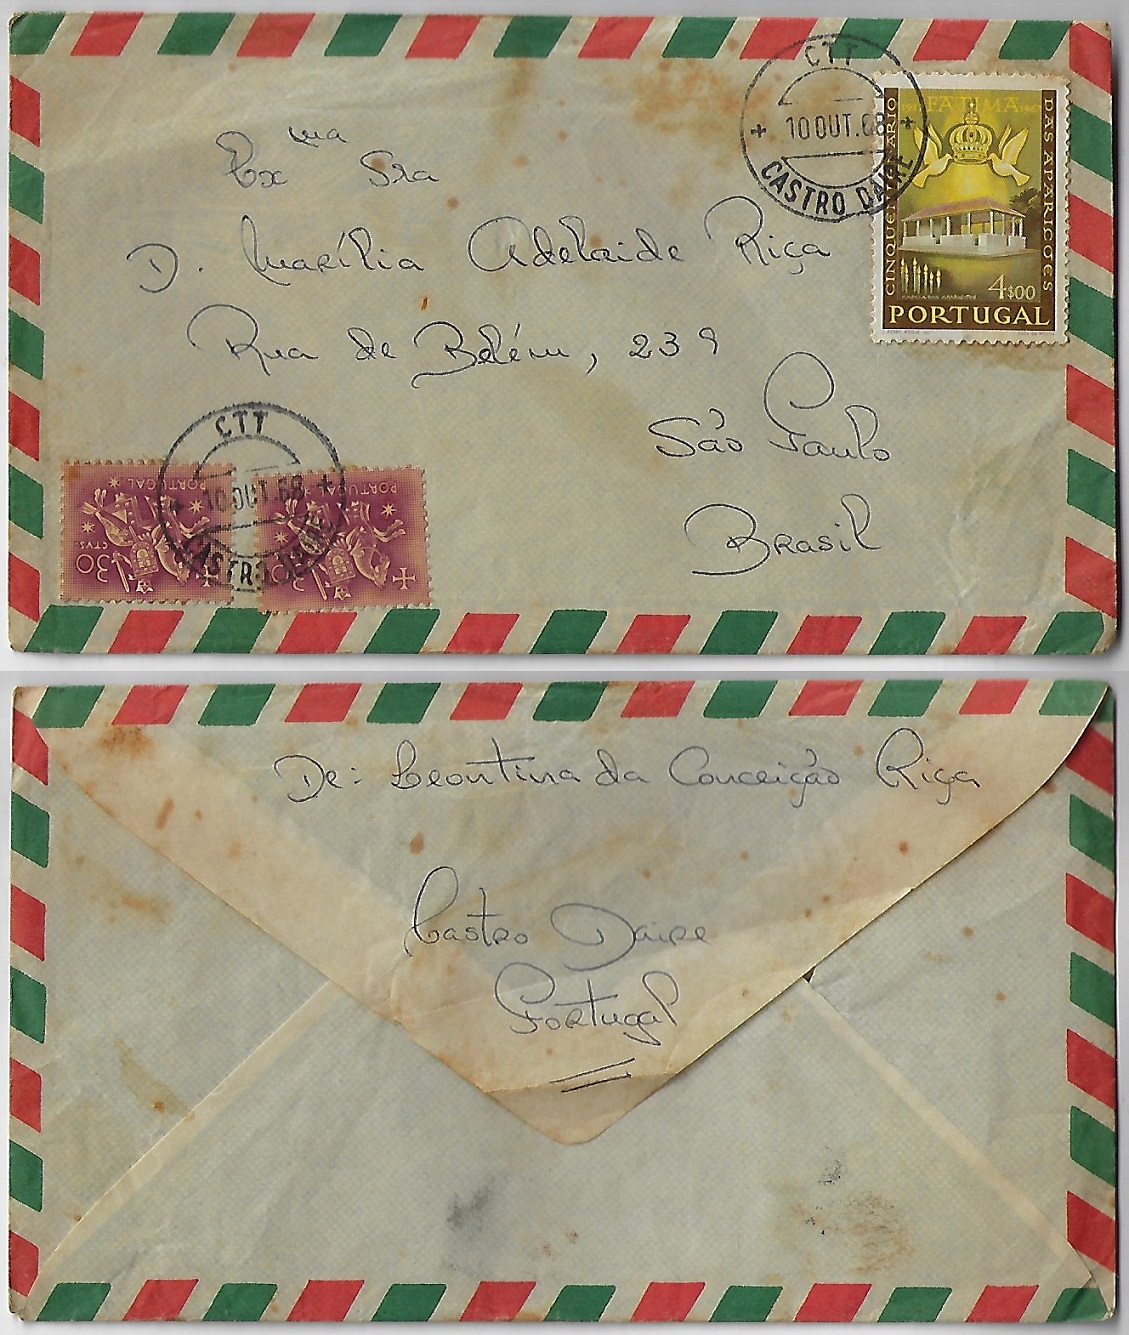 CTT
10 OUT. 68
CASTRO DAIRE
CINQUENTENÁRIO
FÁTIMA
DAS APARIÇÕES
4$00
PORTUGAL
Ex ma Sra
D. Marília Adelaide Riça
Rua de Belém, 239
São Paulo
Brasil
CTT
10 OUT. 68
CASTRO DAIRE
PORTUGAL
CTVS.
30
PORTUGAL
De: Leontina da Conceição Riça
Castro Daire
Portugal